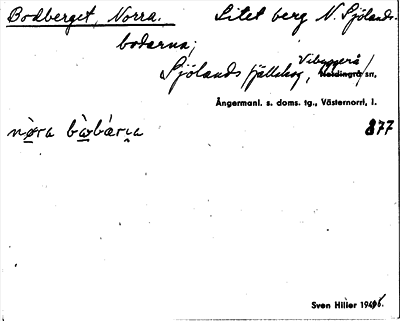 Bodberget, Norra. Litet berg N. Sjölands-
bodarna;
Sjölands fjällskog, Vibyggerå sn,
Ångermanl. s. doms. tg., Västernorrl. l.
nø̀ra bɷ̀bárɩa 877
Sven Hillér 1946.